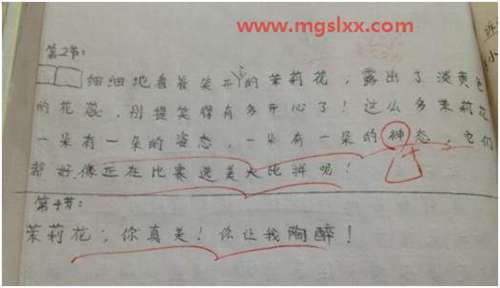 www.mgslxx.com
第2节：
细细地看着笑开的茉莉花，露出了淡黄色
的花蕊，别提笑得有多开心了！这么多茉莉花
一朵有一朵的姿态，一朵有一朵的神态，它们
都好像正在比赛选美大比拼呢！
第4节：
茉莉花，你真美！你让我陶醉！